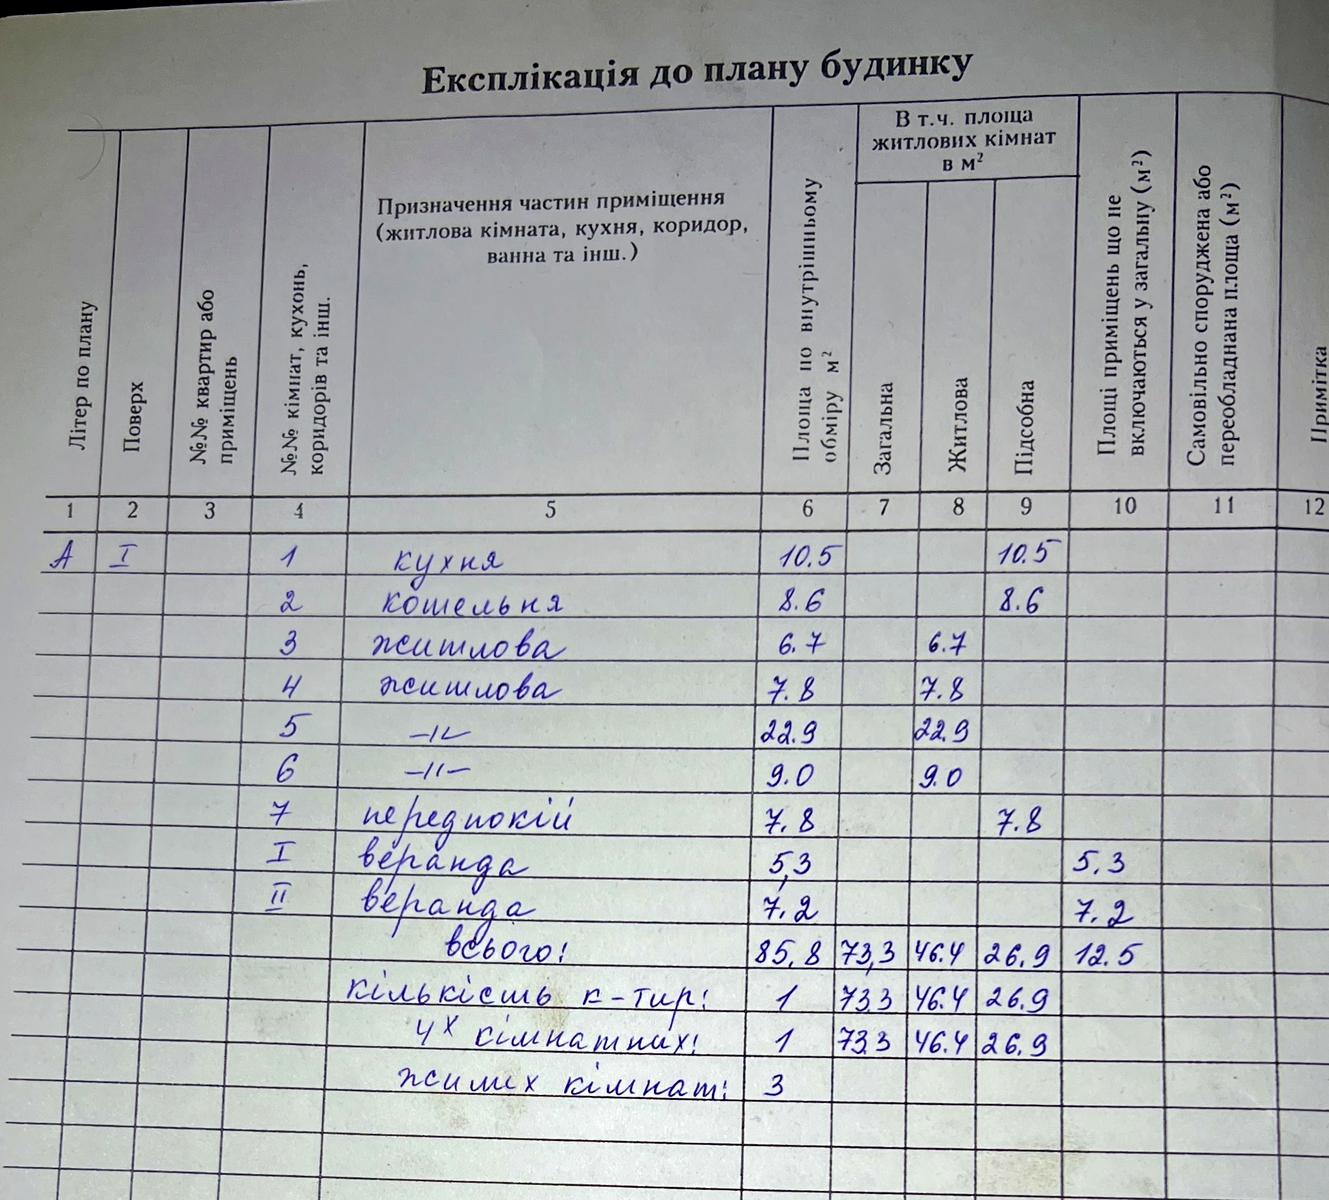 Експлікація до плану будинку
Літер по плану
Поверх
№№ квартир або приміщень
№№ кімнат, кухонь, коридорів та інш.
Призначення частин приміщення
(житлова кімната, кухня, коридор,
ванна та інш.)
Площа по внутрішньому обміру м²
В т.ч. площа
житлових кімнат
в м²
Загальна
Житлова
Підсобна
Площі приміщень що не включаються у загальну (м²)
Самовільно споруджена або переобладнана площа (м²)
Примітка
1 2 3 4 5 6 7 8 9 10 11 12
А I 1 кухня 10.5 10.5
2 котельня 8.6 8.6
3 житлова 6.7 6.7
4 житлова 7.8 7.8
5 -//- 22.9 22.9
6 -//- 9.0 9.0
7 передпокій 7.8 7.8
I веранда 5,3 5,3
II веранда 7,2 7,2
всього: 85,8 73,3 46.4 26.9 12.5
кількість к-тир: 1 73.3 46.4 26.9
4х кімнатних: 1 73.3 46.4 26.9
жилих кімнат: 3